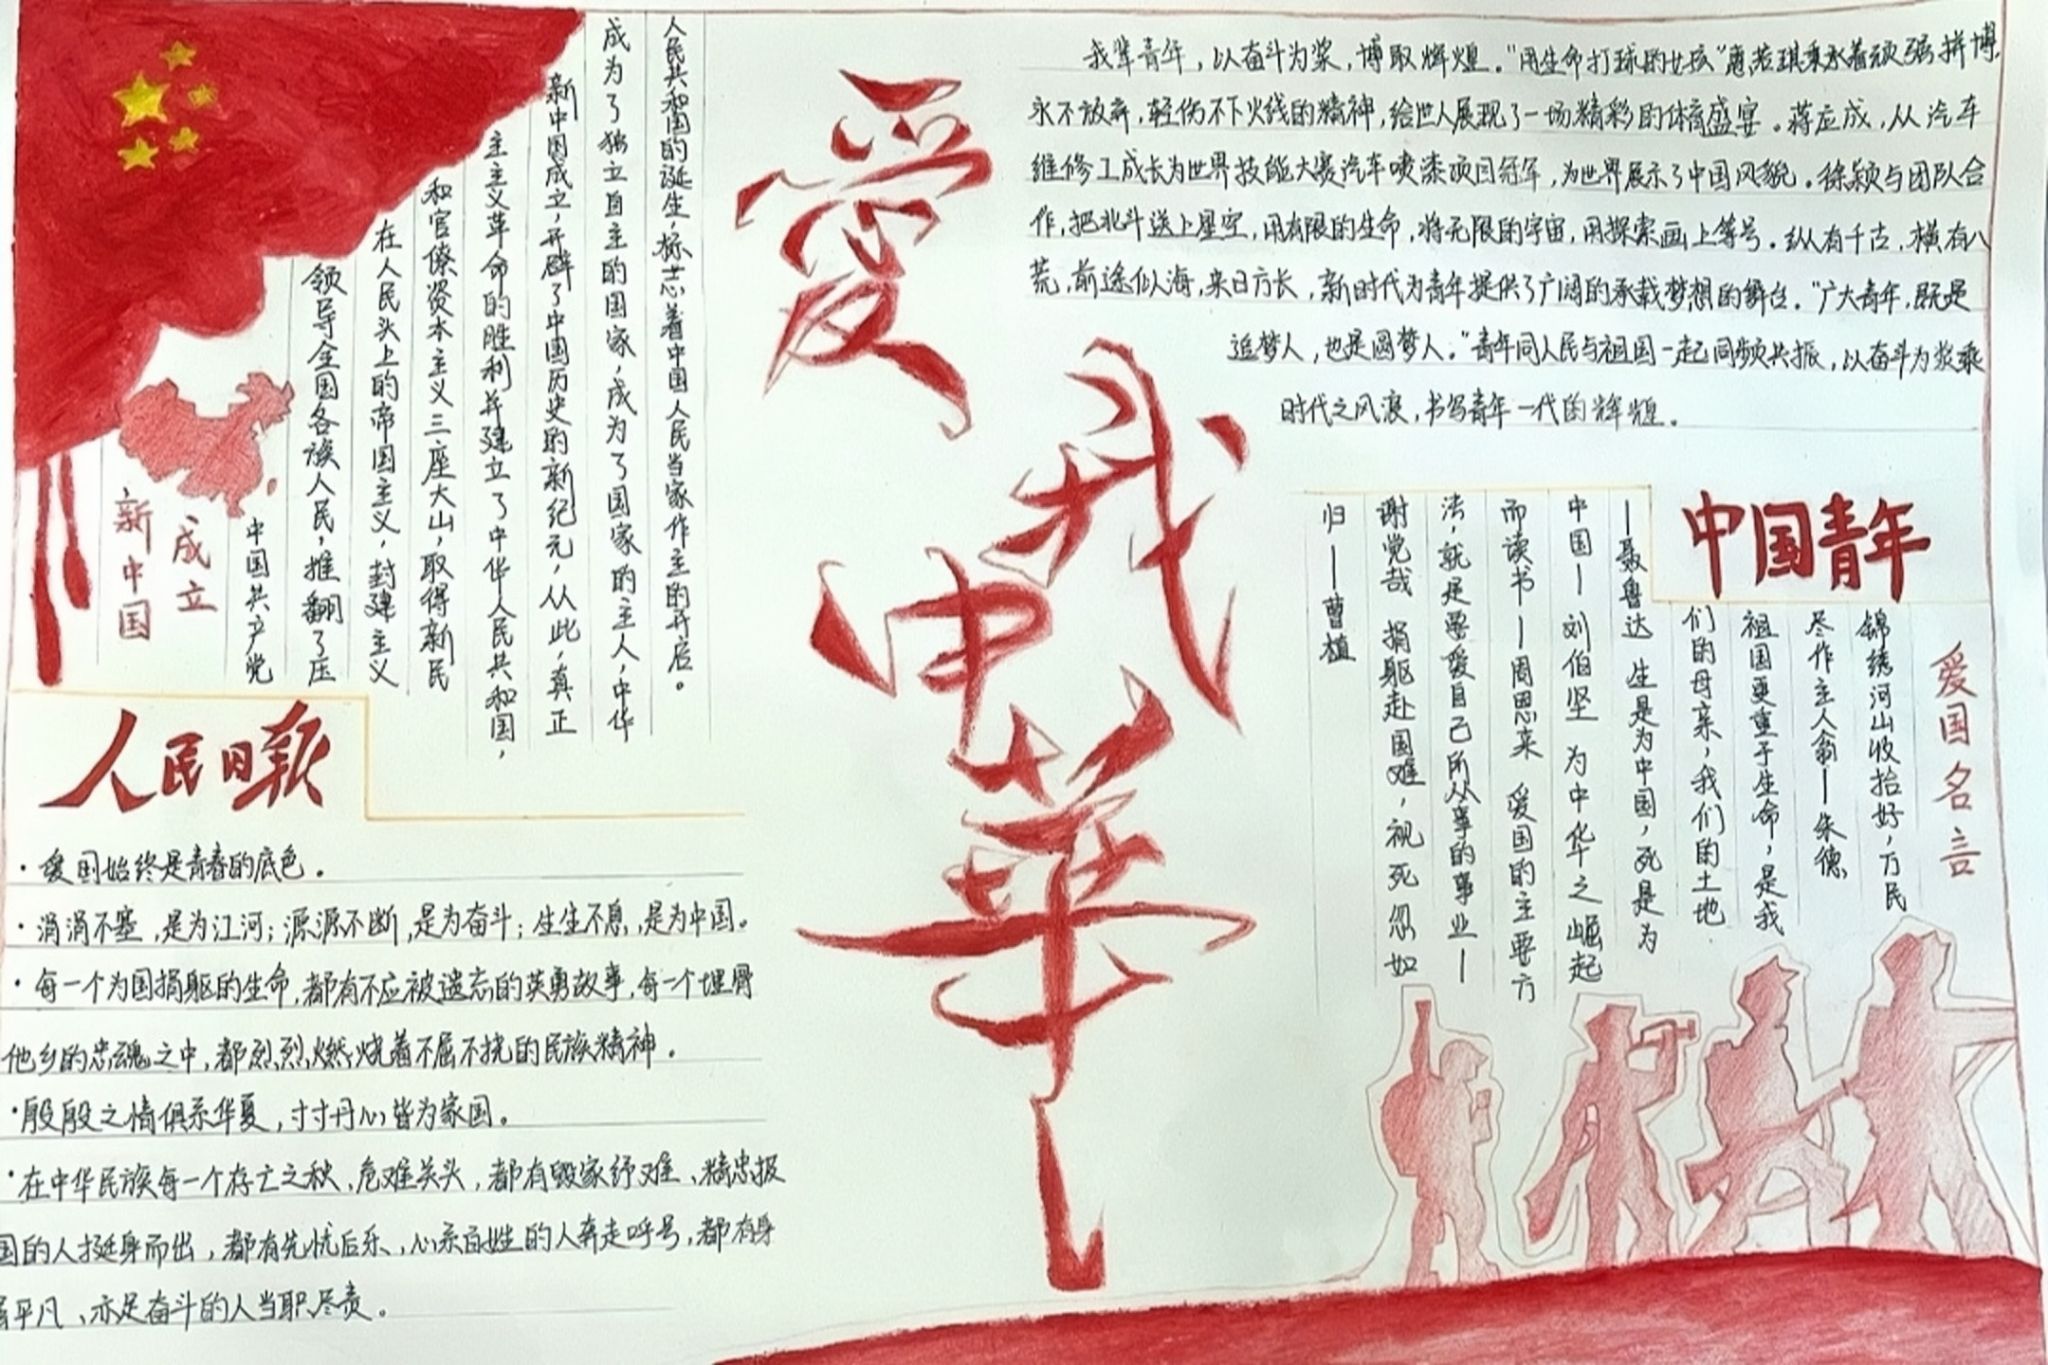 爱我中華
新中国
成立
中国共产党
领导全国各族人民，推翻了压
在人民头上的帝国主义，封建主义
和官僚资本主义三座大山，取得新民
主主义革命的胜利并建立了中华人民共和国，
新中国成立，开辟了中国历史的新纪元，从此，真正
成为了独立自主的国家，成为了国家的主人，中华
人民共和国的诞生，标志着中国人民当家作主的开启。
人民日报
·爱国始终是青春的底色。
·涓涓不塞，是为江河；源源不断，是为奋斗；生生不息，是为中国。
·每一个为国捐躯的生命，都有不应被遗忘的英勇故事，每一个埋骨
他乡的忠魂之中，都烈烈燃烧着不屈不挠的民族精神。
·殷殷之情俱系华夏，寸寸丹心皆为家国。
·在中华民族每一个存亡之秋、危难关头，都有毁家纾难、精忠报
国的人挺身而出，都有先忧后乐、心系百姓的人奔走呼号，都有身
平凡、亦足奋斗的人当职尽责。
我辈青年，以奋斗为桨，博取辉煌。“用生命打球的女孩”惠若琪秉承着顽强拼博，
永不放弃，轻伤不下火线的精神，给世人展现了一场精彩的体育盛宴。蒋应成，从汽车
维修工成长为世界技能大赛汽车喷漆项目冠军，为世界展示了中国风貌。徐颖与团队合
作，把北斗送上星空，用有限的生命，将无限的宇宙，用探索画上等号。纵有千古，横有八
荒，前途似海，来日方长，新时代为青年提供了广阔的承载梦想的舞台。“广大青年，既是
追梦人，也是圆梦人。”青年同人民与祖国一起同频共振，以奋斗为桨乘
时代之风浪，书写青年一代的辉煌。
中国青年
爱国名言
锦绣河山收拾好，万民
尽作主人翁—朱德
祖国更重于生命，是我
们的母亲，我们的土地
—聂鲁达 生是为中国，死是为
中国—刘伯坚 为中华之崛起
而读书—周恩来 爱国的主要方
法，就是要爱自己所从事的事业—
谢觉哉 捐躯赴国难，视死忽如
归—曹植